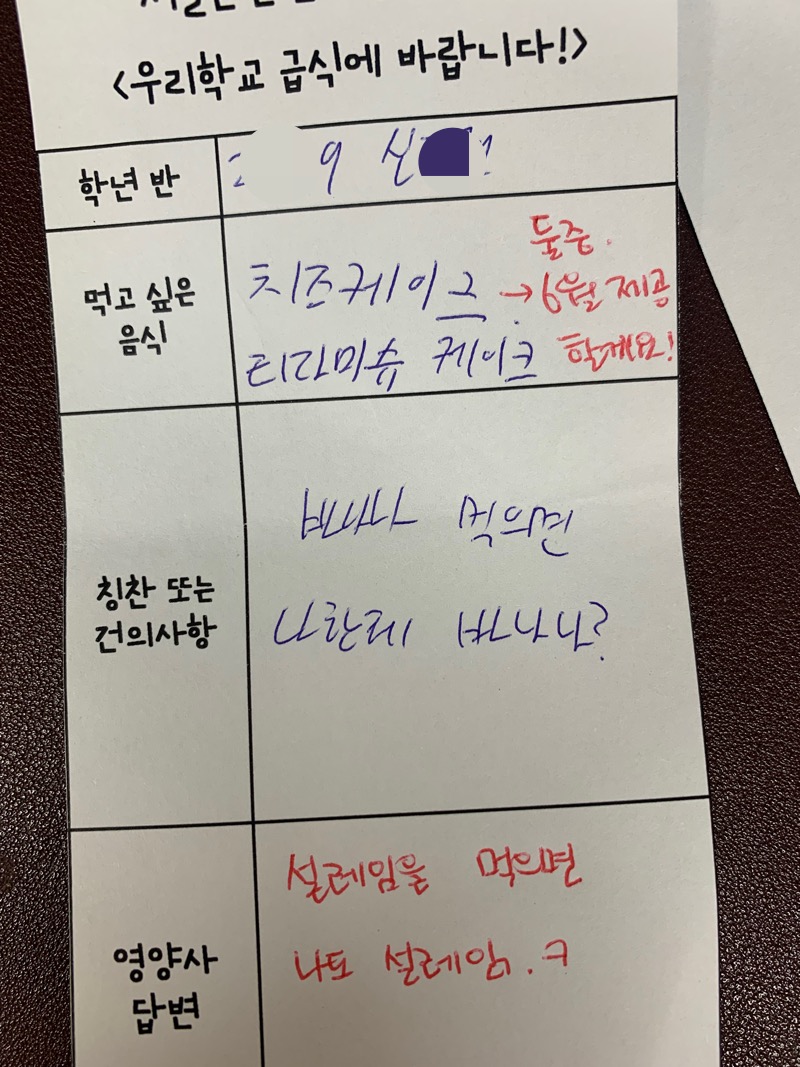 <우리학교 급식에 바랍니다!>
학년 반
9 신
먹고 싶은
음식
치즈케이크
티라미슈 케이크
둘중.
→6월 제공
할게요!
칭찬 또는
건의사항
바나나 먹으면
나한테 바나나?
영양사
답변
설레임을 먹으면
나도 설레임. ㅋ